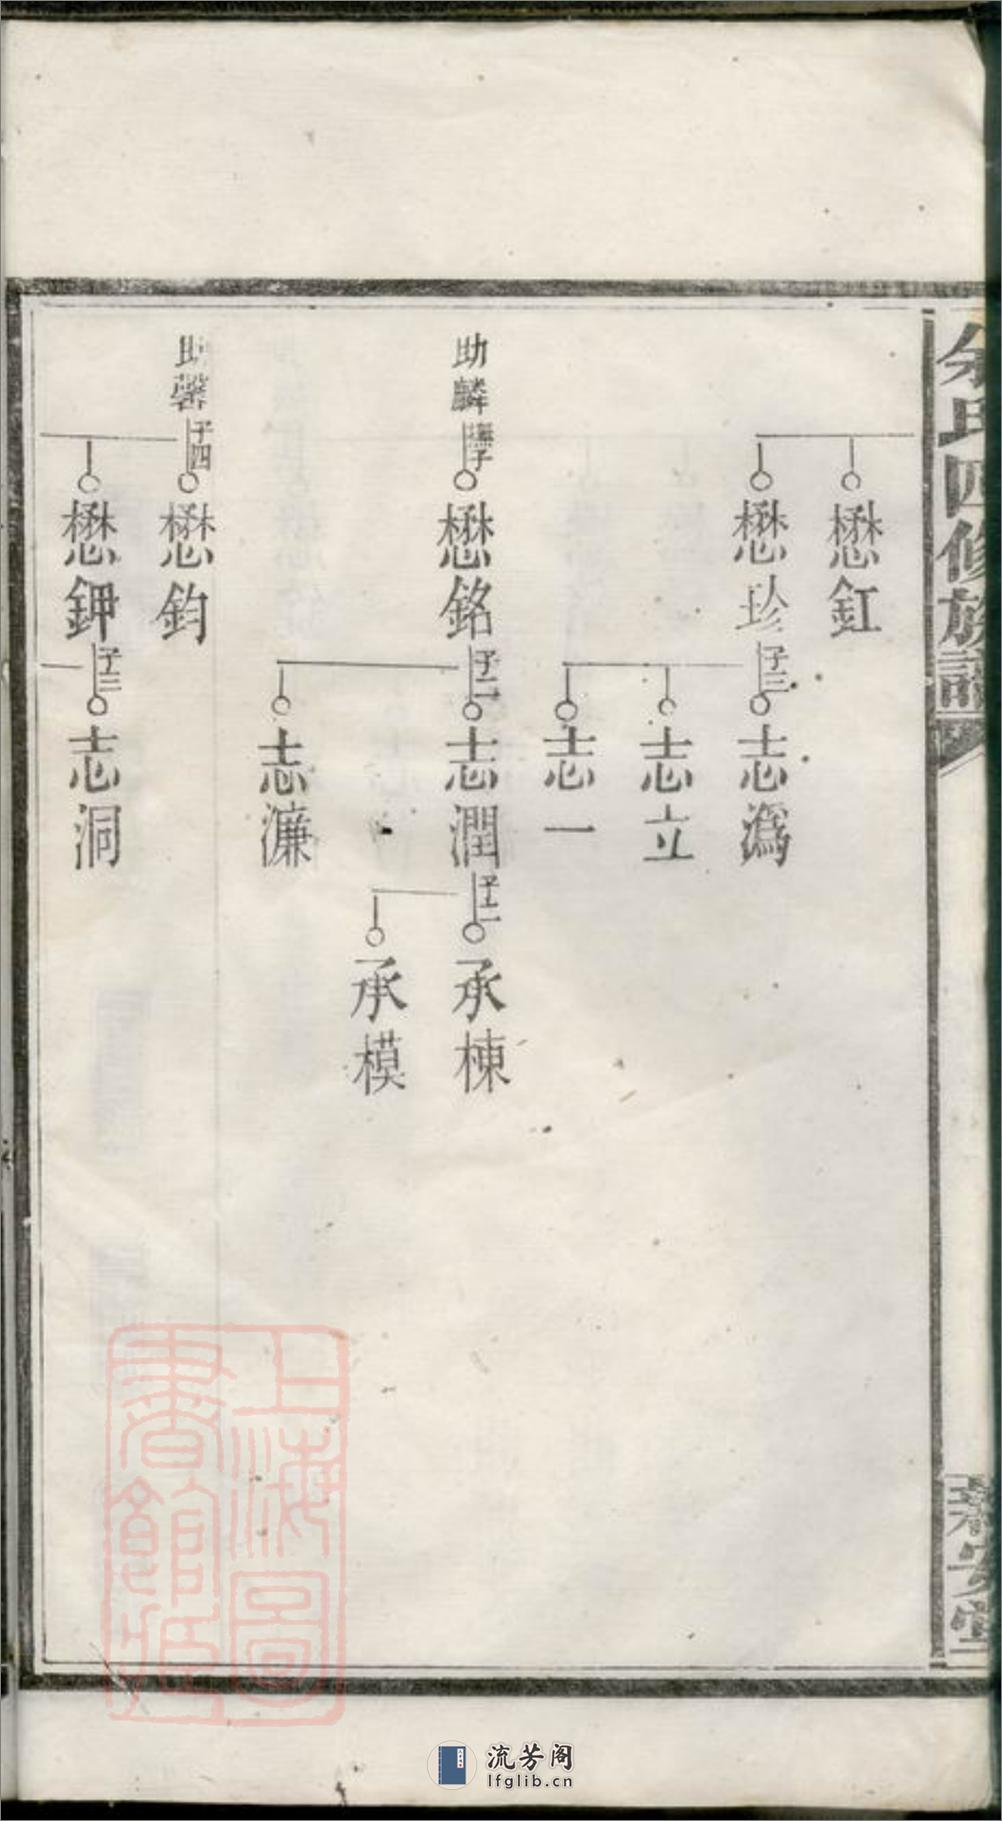 余氏四修族譜
懋釭
懋珍
子三
志潙
志立
志一
助麟
懋銘
子二
志潤
子二
承棟
承模
志濂
助馨
子四
懋鈞
懋鉀
子三
志洞
安堂
上海圖
書館藏
流芳阁
lfglib.cn